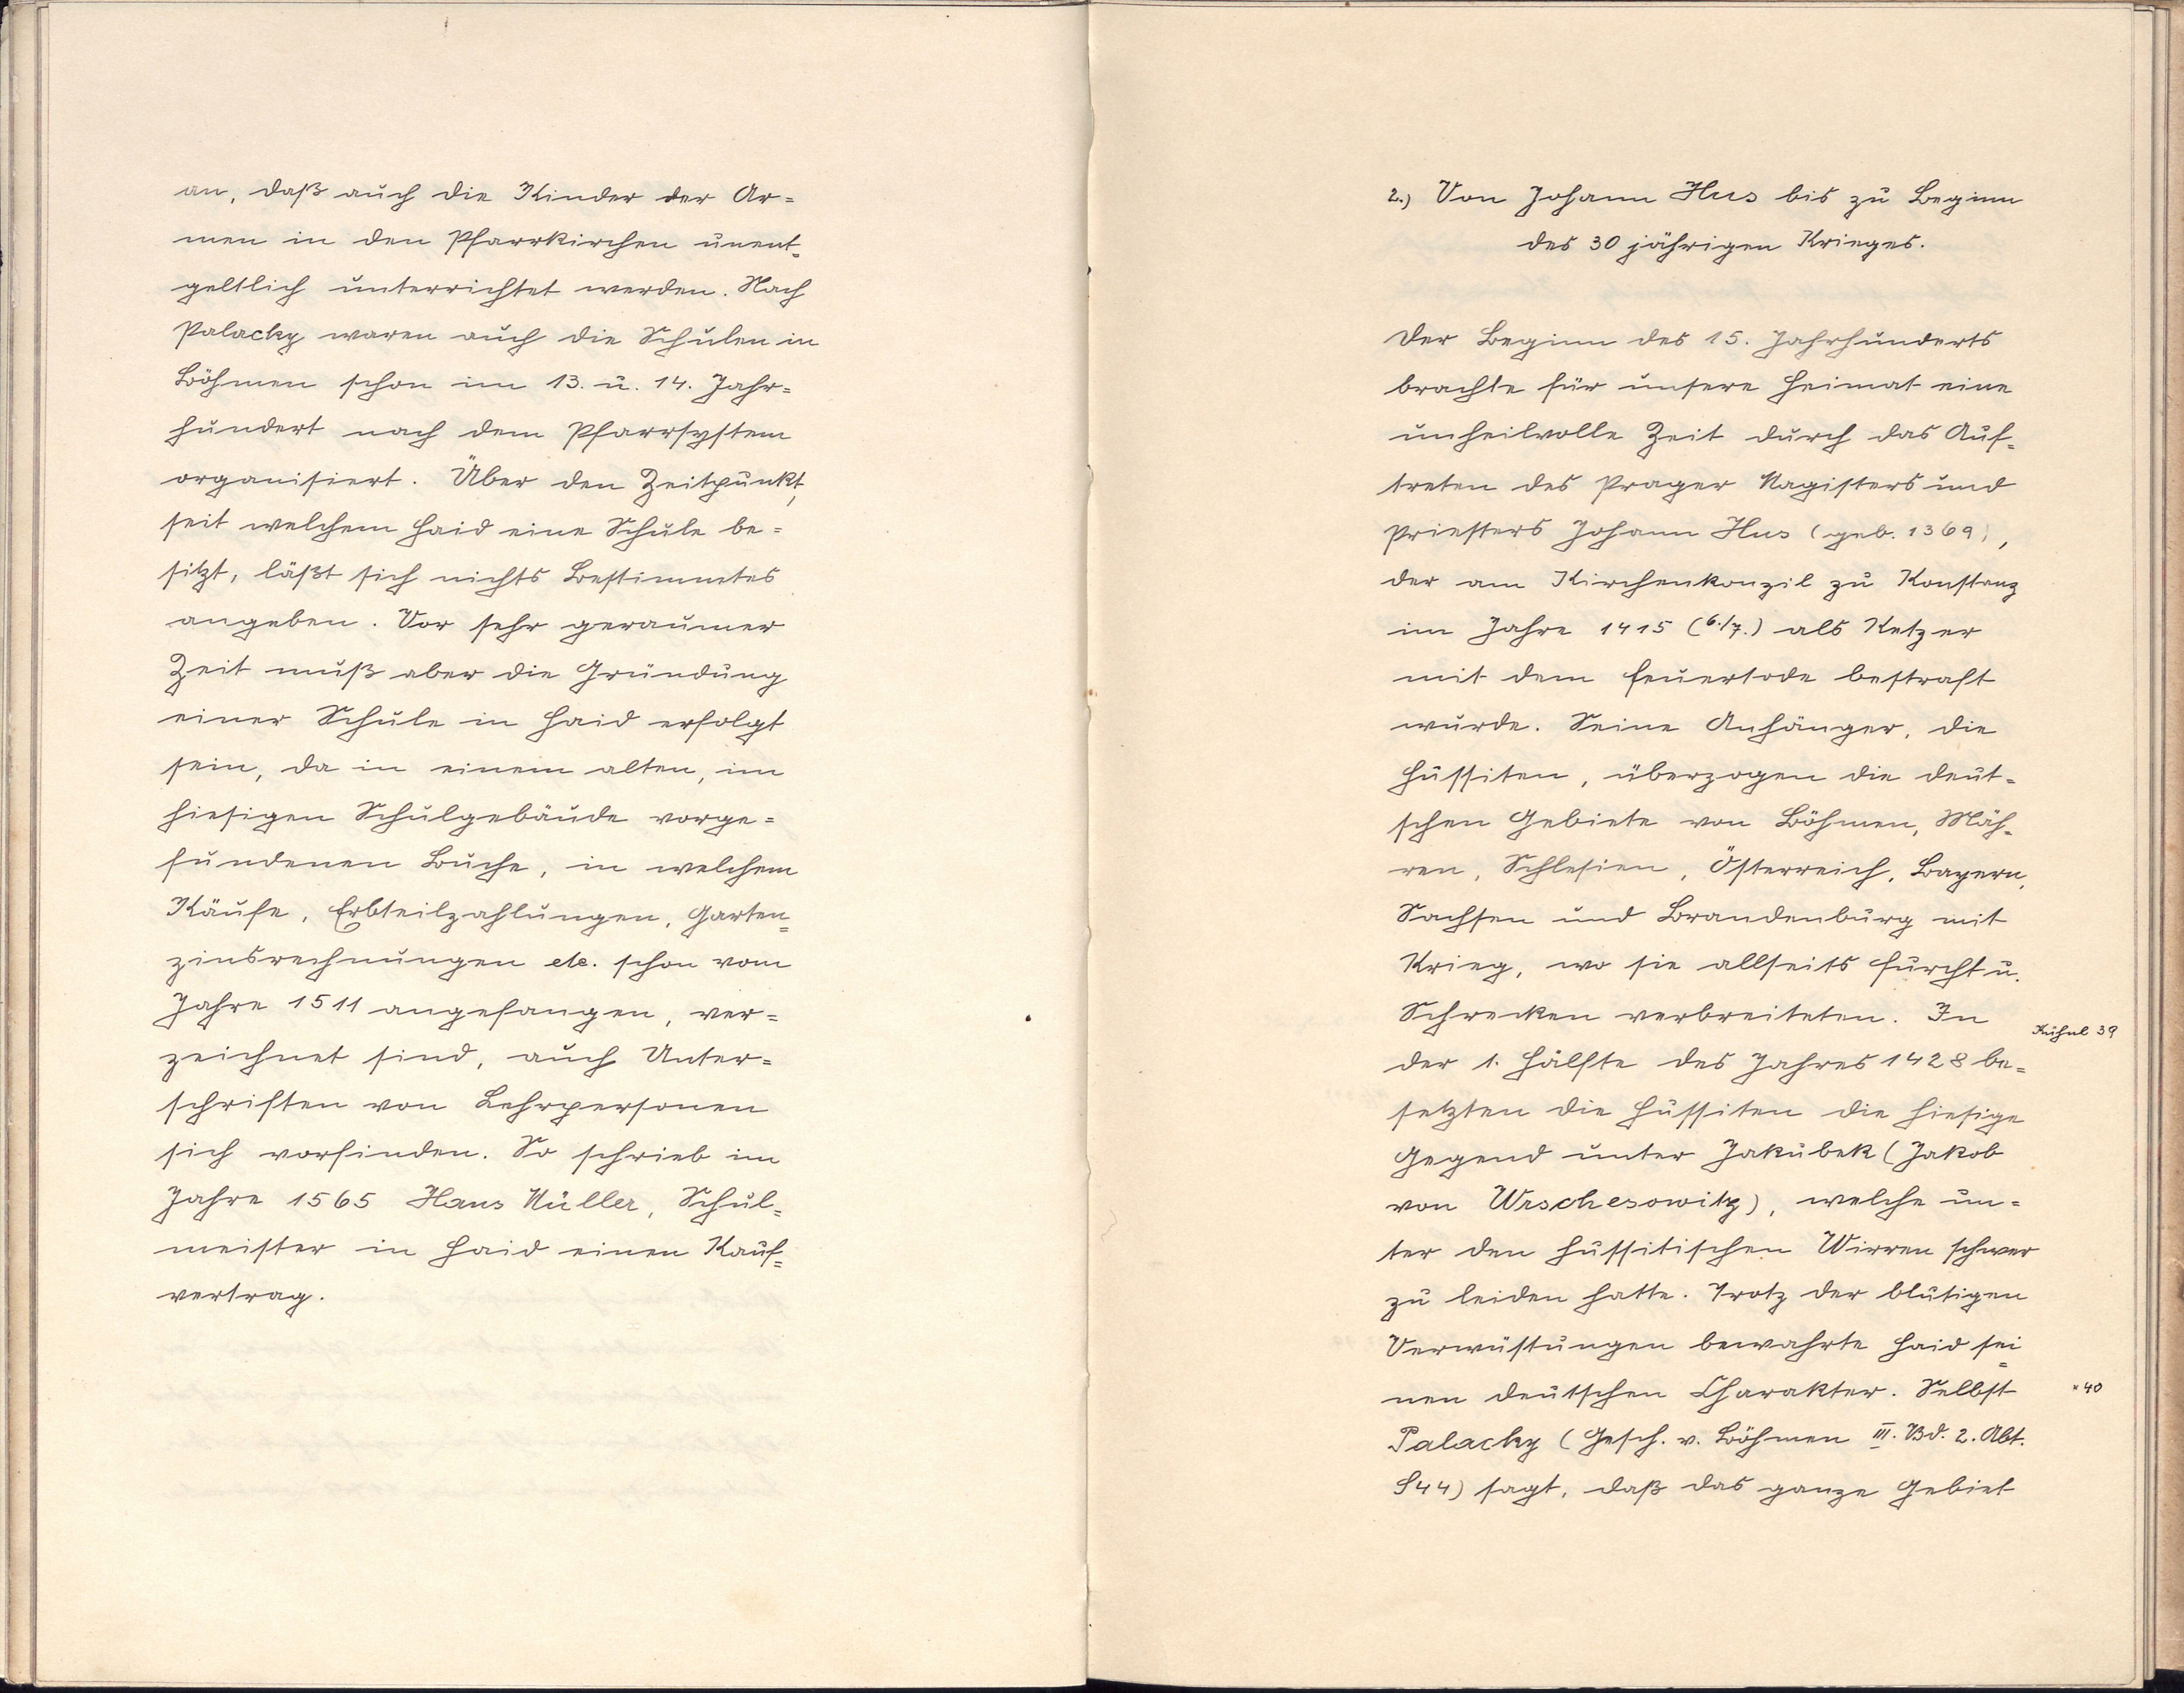 an, daß auch die Kinder der Ar=
men in den Pfarrkirchen unent=
geltlich unterrichtet werden. Nach
Palacky waren auch die Schulen in
Böhmen schon im 13. u. 14. Jahr=
hundert nach dem Pfarrsystem
organisiert. Über den Zeitpunkt,
seit welchem Haid eine Schule be=
sitzt, läßt sich nichts Bestimmtes
angeben. Vor sehr geraumer
Zeit muß aber die Gründung
einer Schule in Haid erfolgt
sein, da in einem alten, im
hiesigen Schulgebäude vorge=
fundenen Buche, in welchem
Käufe, Erbteilzahlungen, Garten=
zinsrechnungen etc. schon vom
Jahre 1511 angefangen, ver=
zeichnet sind, auch Unter=
schriften von Lehrpersonen
sich vorfinden. So schrieb im
Jahre 1565 Hans Müller, Schul=
meister in Haid einen Kauf=
vertrag.
2.) Von Johann Hus bis zu Beginn
des 30 jährigen Krieges.
Der Beginn des 15. Jahrhunderts
brachte für unsere Heimat eine
unheilvolle Zeit durch das Auf=
treten des Prager Magisters und
Priesters Johann Hus (geb. 1369),
der am Kirchenkonzil zu Konstanz
im Jahre 1415 (6./7.) als Ketzer
mit dem Feuertode bestraft
wurde. Seine Anhänger, die
Hussiten, überzogen die deut=
schen Gebiete von Böhmen, Mäh=
ren, Schlesien, Österreich, Bayern,
Sachsen und Brandenburg mit
Krieg, wo sie allseits Furcht u.
Schrecken verbreiteten. In
Kühnl 39
der 1. Hälfte des Jahres 1428 be=
setzten die Hussiten die hiesige
Gegend unter Jakubek (Jakob
von Wrschesowitz), welche un=
ter den hussitischen Wirren schwer
zu leiden hatte. Trotz der blutigen
Verwüstungen bewahrte Haid sei=
nen deutschen Charakter. Selbst
" 40
Palacky (Gesch. v. Böhmen III. Bd. 2. Abt.
S44) sagt, daß das ganze Gebiet